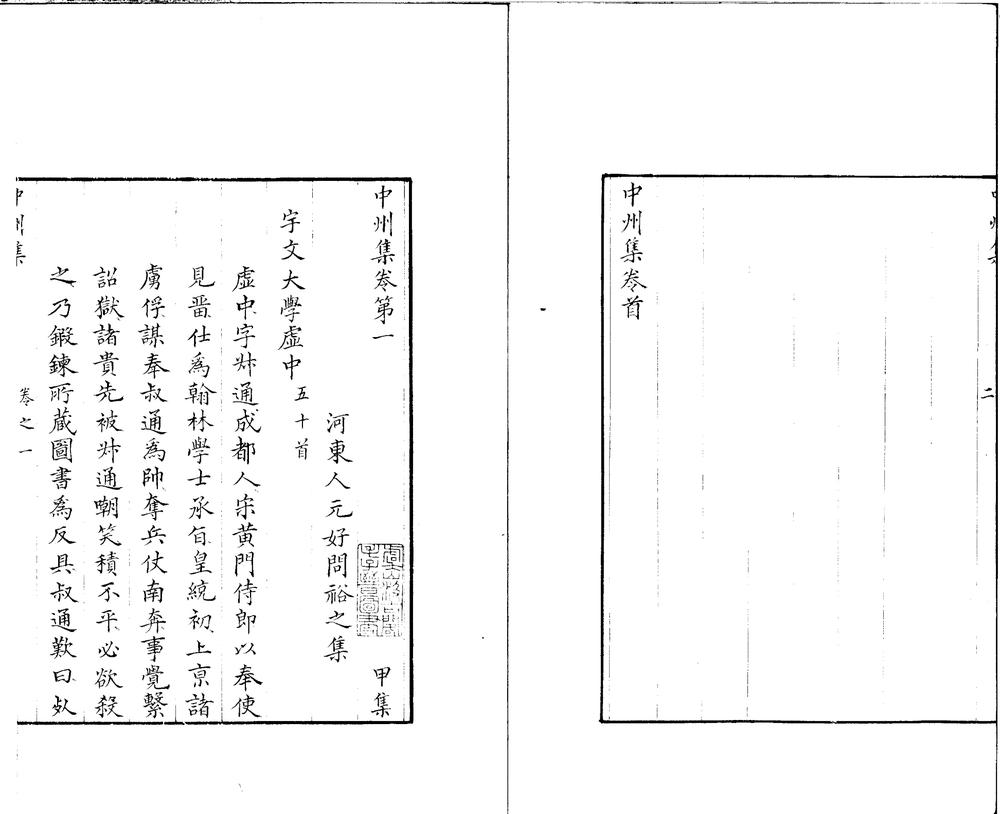 二
中州集卷首
中州集卷第一 甲集
河東人元好問裕之集
宇文大學虛中 五十首
虛中字叔通成都人宋黃門侍郎以奉使
見畱仕爲翰林學士承旨皇統初上京諸
虜俘謀奉叔通爲帥奪兵仗南奔事覺繫
詔獄諸貴先被叔通嘲笑積不平必欲殺
之乃鍛鍊所蔵圖書爲反具叔通歎曰死
中州集
卷之一